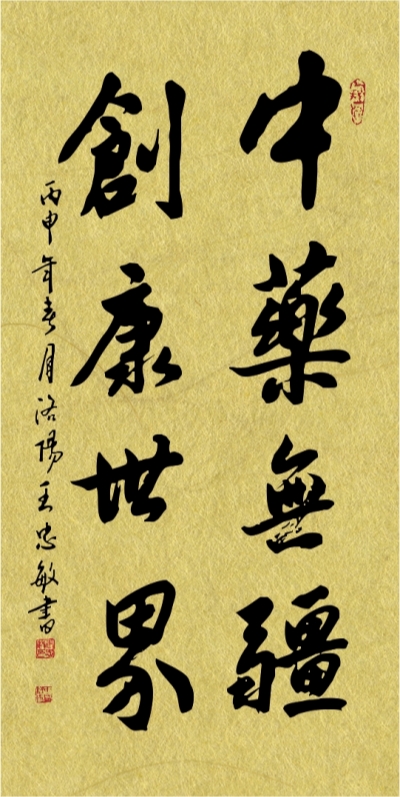 中藥無疆
創康世界
丙申年春月洛陽王忠敏書